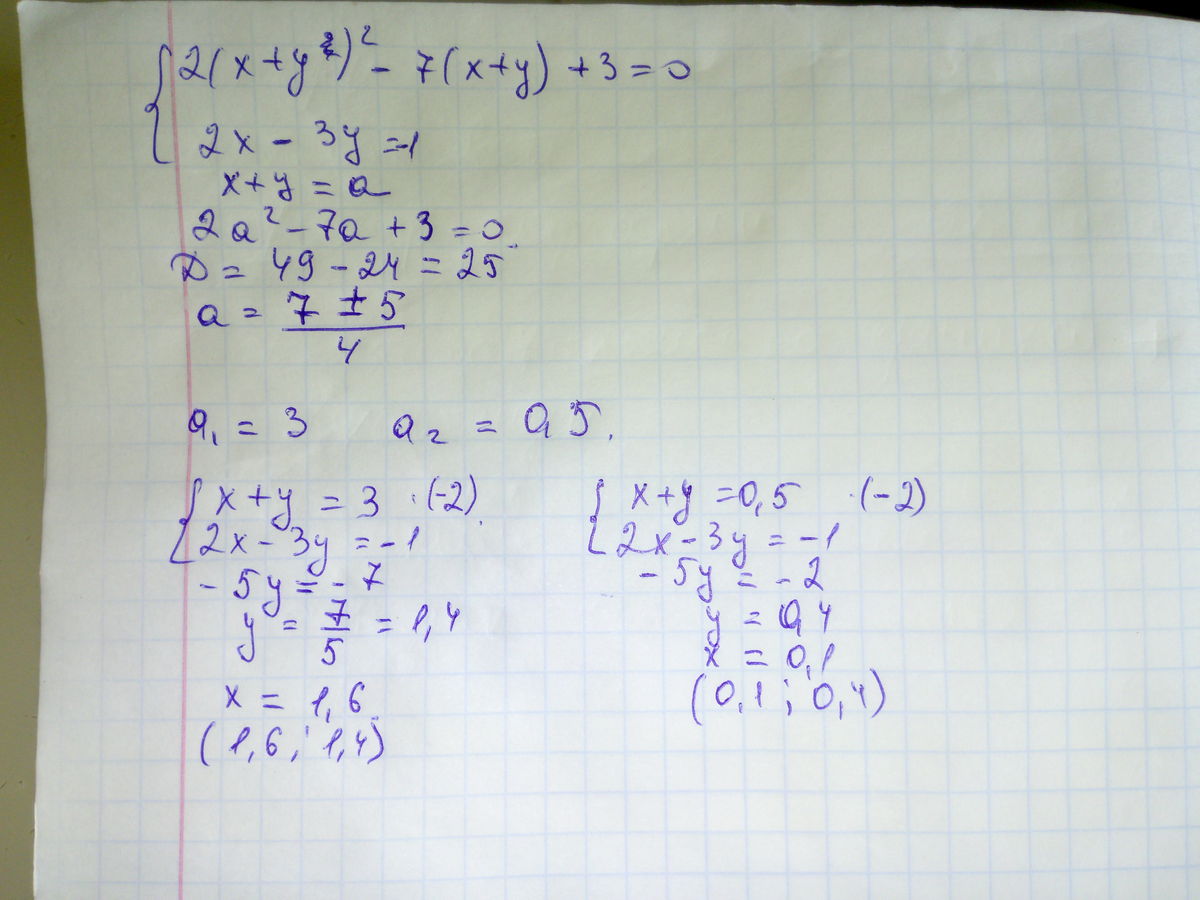 2(x+y)² - 7(x+y) + 3 = 0
2x - 3y = -1
x+y = a
2a² - 7a + 3 = 0.
D = 49 - 24 = 25
a = (7 ± 5)/4
a₁ = 3 a₂ = 0,5.
x+y = 3 ·(-2)
2x - 3y = -1
-5y = -7
y = 7/5 = 1,4
x = 1,6
(1,6; 1,4)
x+y = 0,5 ·(-2)
2x - 3y = -1
-5y = -2
y = 0,4
x = 0,1
(0,1; 0,4)